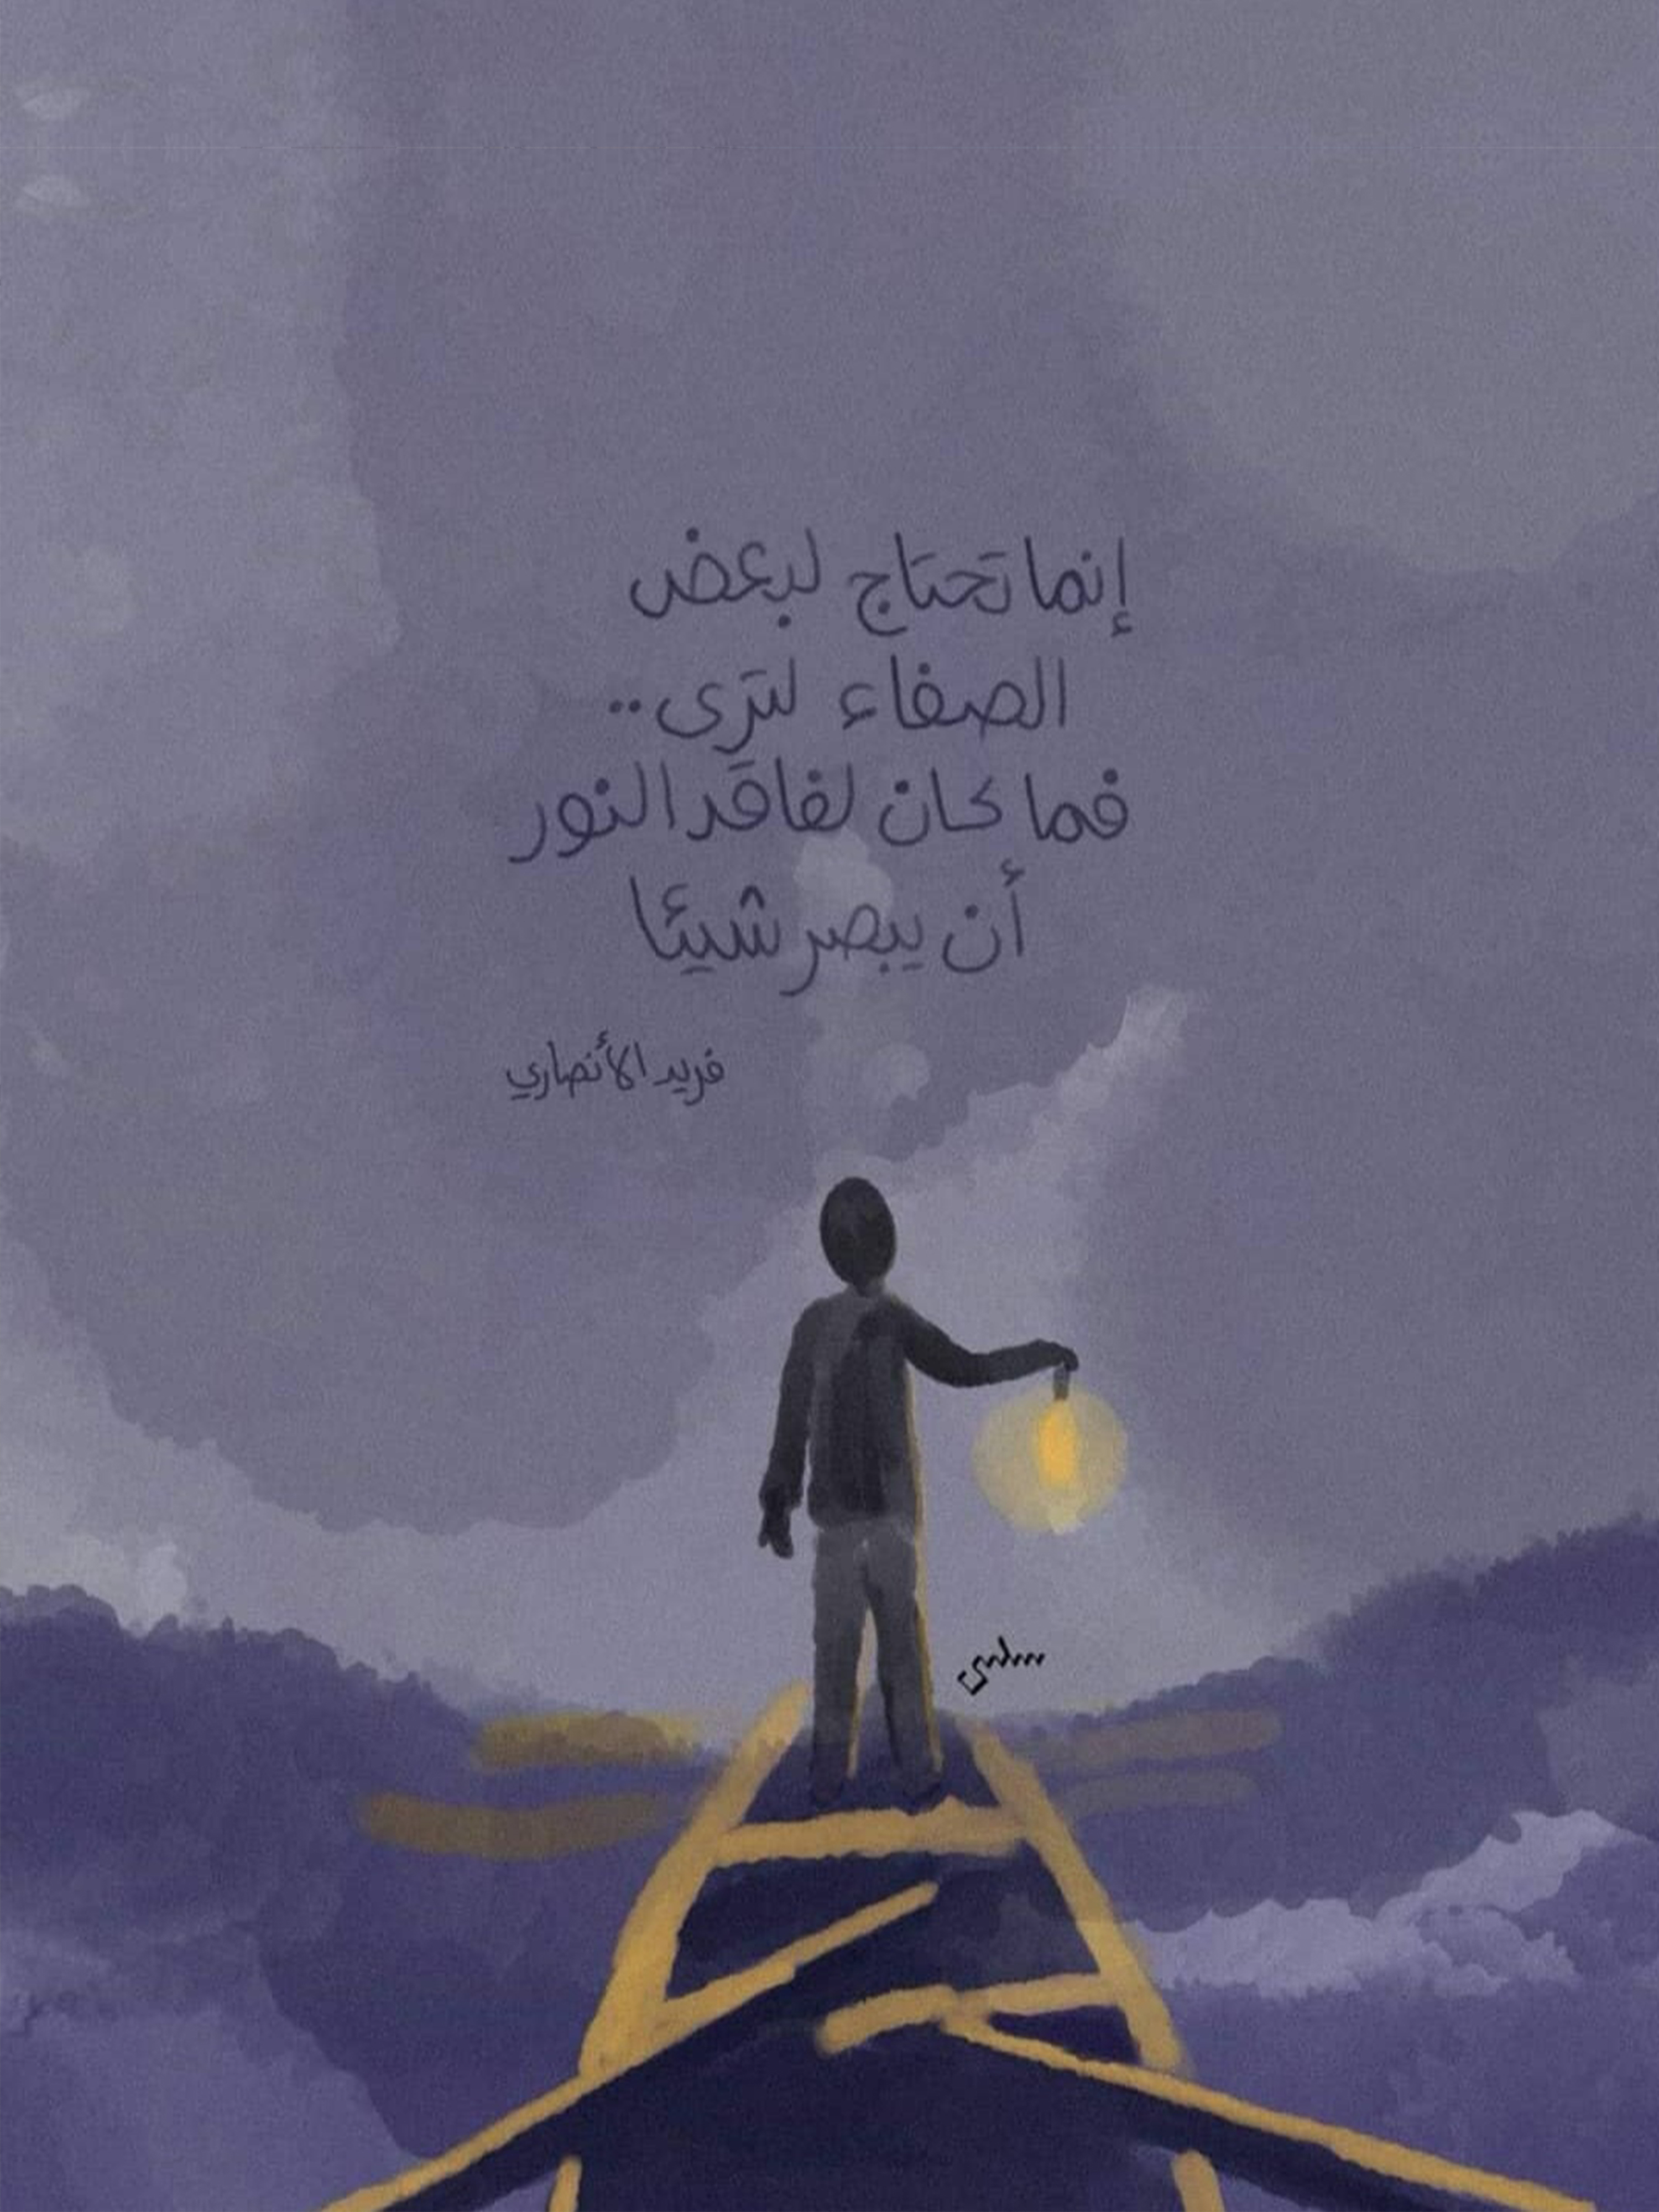 إنما تحتاج لبعض
الصفاء لترى..
فما كان لفاقد النور
أن يبصر شيئا
فريد الأنصاري
سلمى